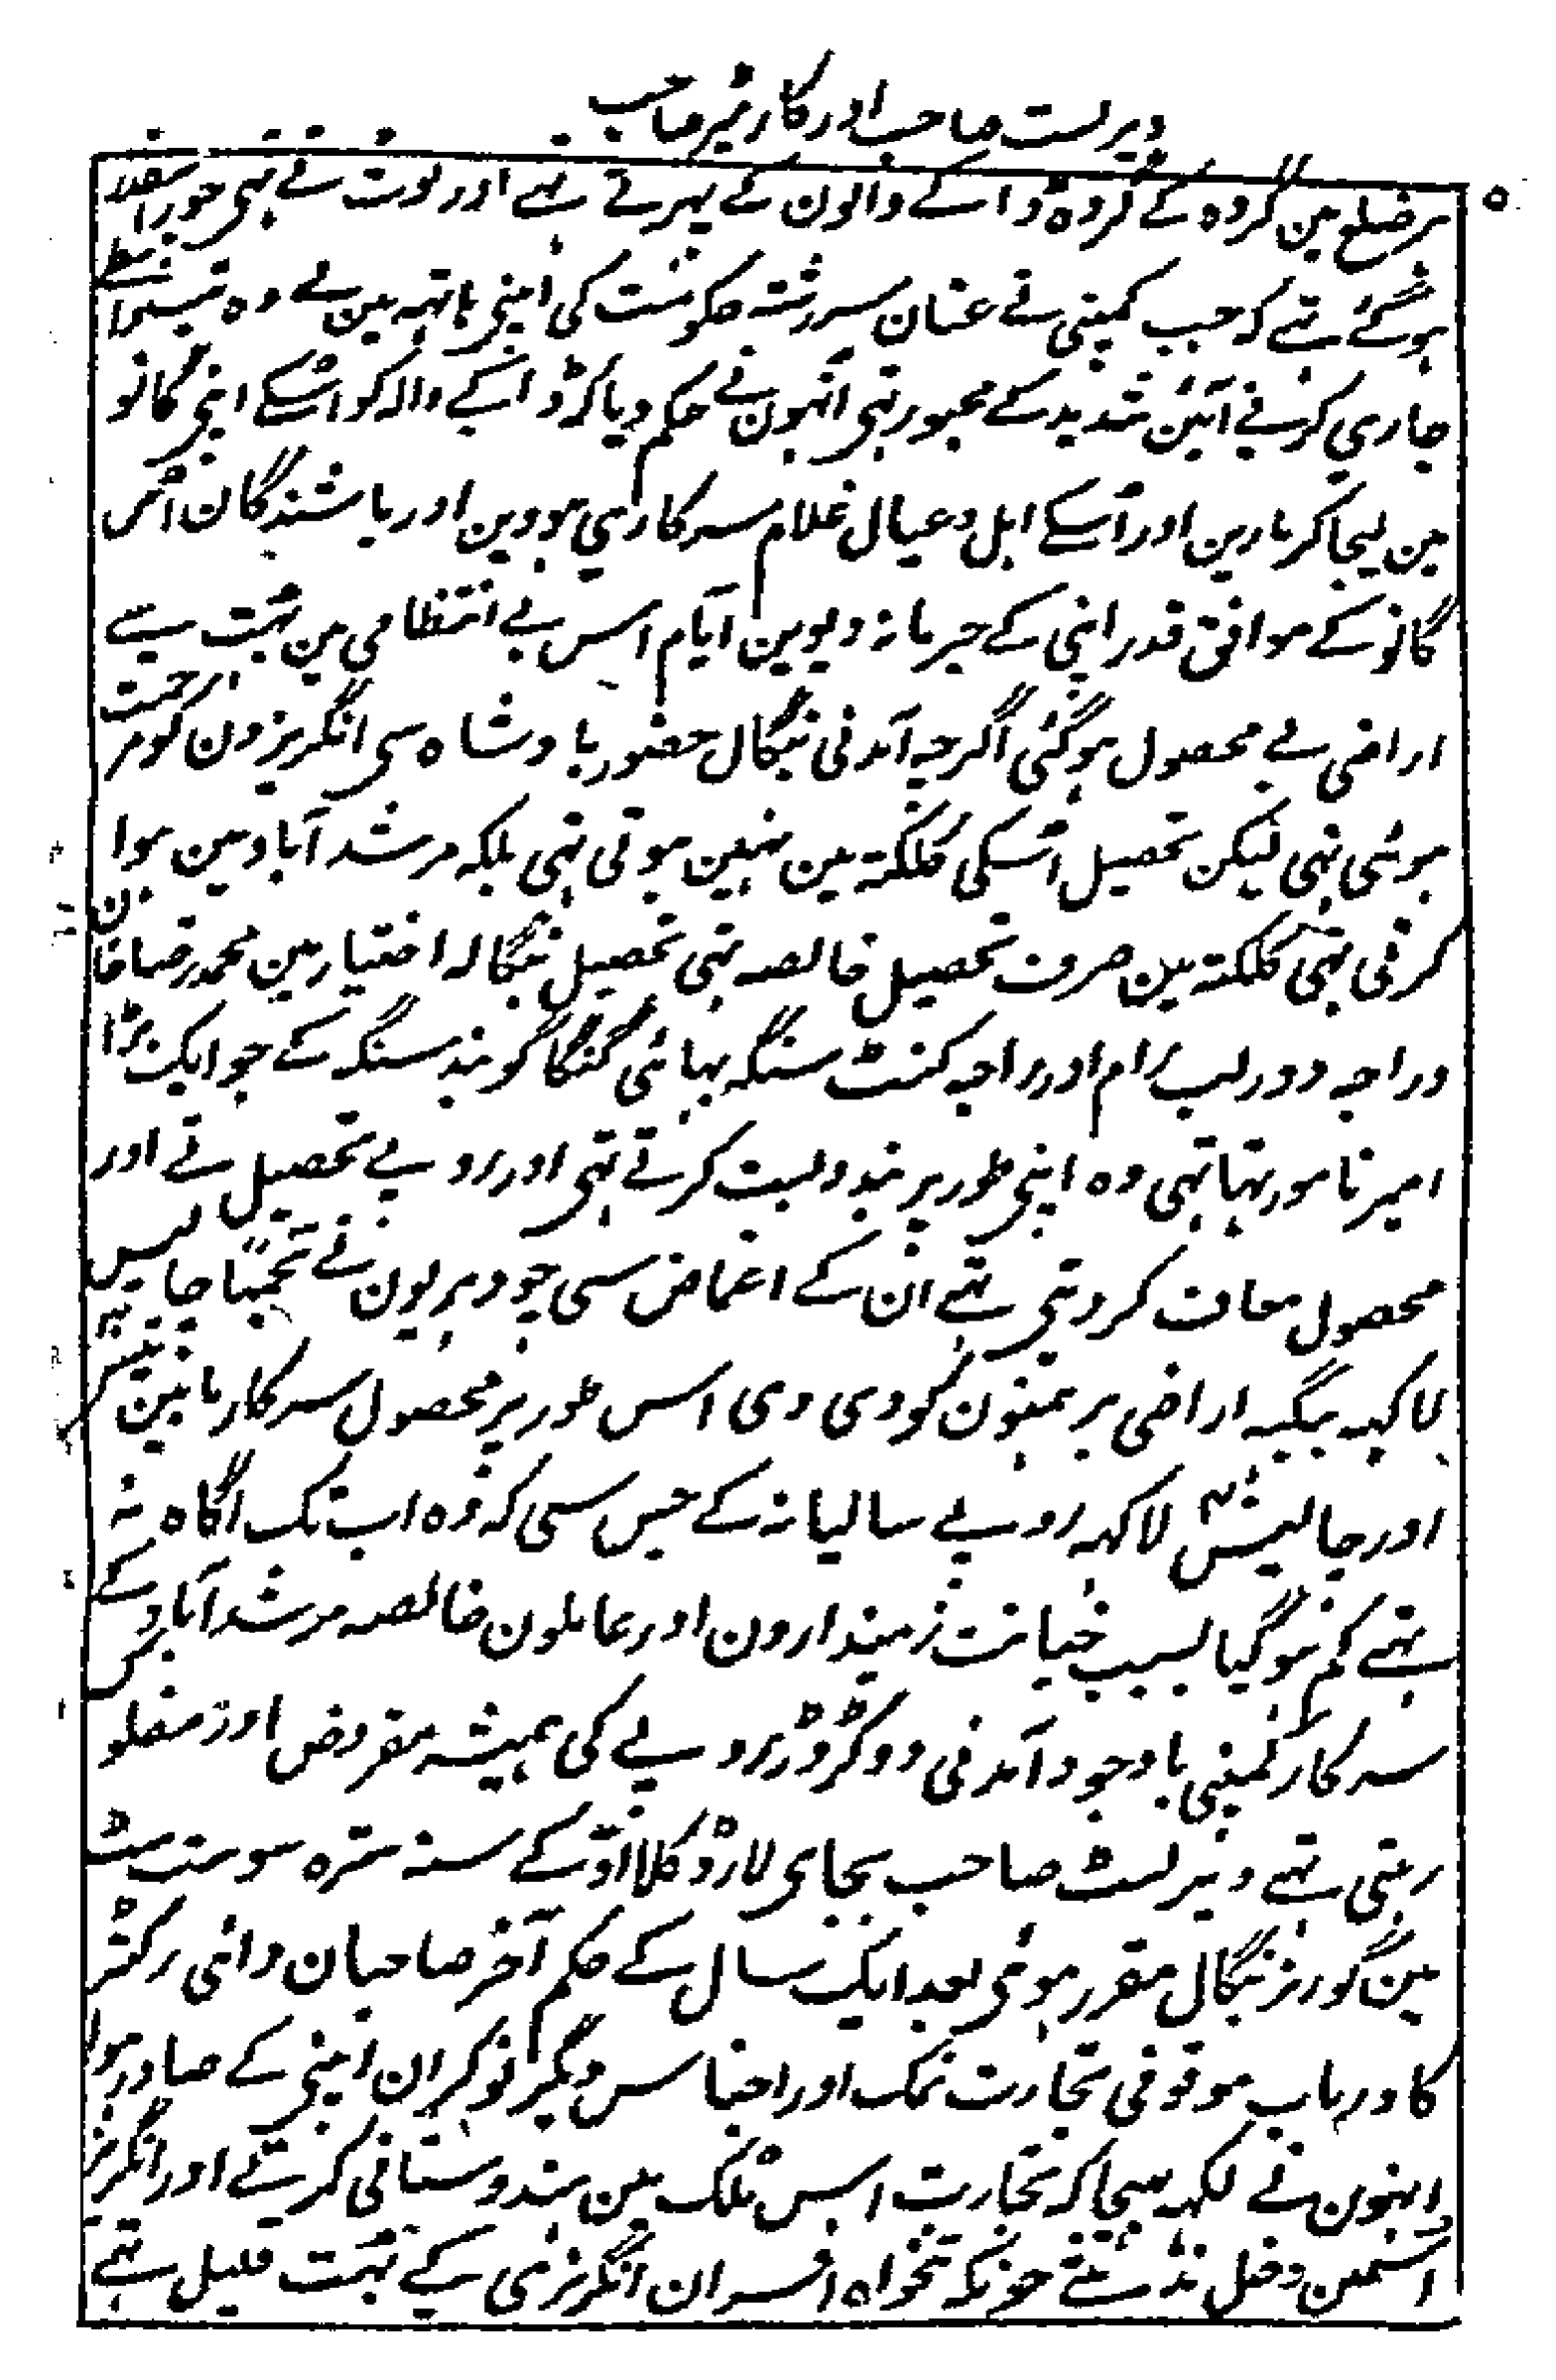 ویرلست صاحب اور کارٹیر صاحب
۵
ہر ضلع مین گروہ کے گروہ ڈاکے والون کے پہرتے تہے اور لوٹ تے تہی جو اسقدر
ہو گئے تہے کہ جب کمپنی نے عنان سررشتہ حکومت کی اپنی ہاتہہ مین لے وہ
جاری کرنے آئین شدید کے مجبور تہی انہون نے حکم دیا کہ ڈاکے والہ کو اسکے اپنی گانو
مین لیجا کر مارین اور اسکے اہل و عیال غلام سرکاری ہووین اور باشندگان اس
گانو کے موافق قدر اپنی کے جرمانہ دیوین ایام اس بے انتظامی مین بہت سے
اراضی بے محصول ہو گئی اگرچہ آمدنی بنگال حضور بادشاہ سی انگریزون کو مرحمت
ہوئی تہی لیکن تحصیل اسکی کلکتہ مین نہین ہوتی تہی بلکہ مرشد آباد مین ہوا
کرتی تہی کلکتہ مین صرف تحصیل خالصہ تہی تحصیل بنگالہ اختیار مین محمد رضا خان
و راجہ دورلب رام اور راجہ کنٹ سنگہ بہائی گنگا گوبند سنگہ کے جو ایک بڑا
امیر نامور تہا تہی وہ اپنی طور پر بندوبست کرتے تہی اور روپے تحصیل تے اور
محصول معاف کر دیتی تہے ان کے اغماض سی چودہریون نے تخمیناً چالیس
لاکہہ بیگہہ اراضی برہمنون کو دی دی اس طور پر محصول سرکار مابین تیس
اور چالیس لاکہہ روپے سالیانہ کے جس سی کہ وہ اب تک آگاہ نہ
تہے کم ہو گیا بسبب خیانت زمیندارون اور عاملون خالصہ مرشد آباد کے
سرکار کمپنی باوجود آمدنی دو کڑوڑ روپے کی ہمیشہ مقروض اور مفلوکس
رہتی تہے ویرلسٹ صاحب بجای لارڈ کلااوٴ کے سنہ سترہ سو ستسٹ
مین گورنر بنگال مقرر ہوئی بعد ایک سال کے حکم آخر صاحبان دائی رکٹر
کا در باب موقوفی تجارت نمک اور اجناس دیگر نوکران اپنی کے صادر ہوا
انہون نے لکہہ بہیجا کہ تجارت اس ملک مین ہندوستانی کرتے اور انگریز
اسمین دخل ندیتے چونکہ تنخواہ افسران انگریزی کے بہت قلیل تہے